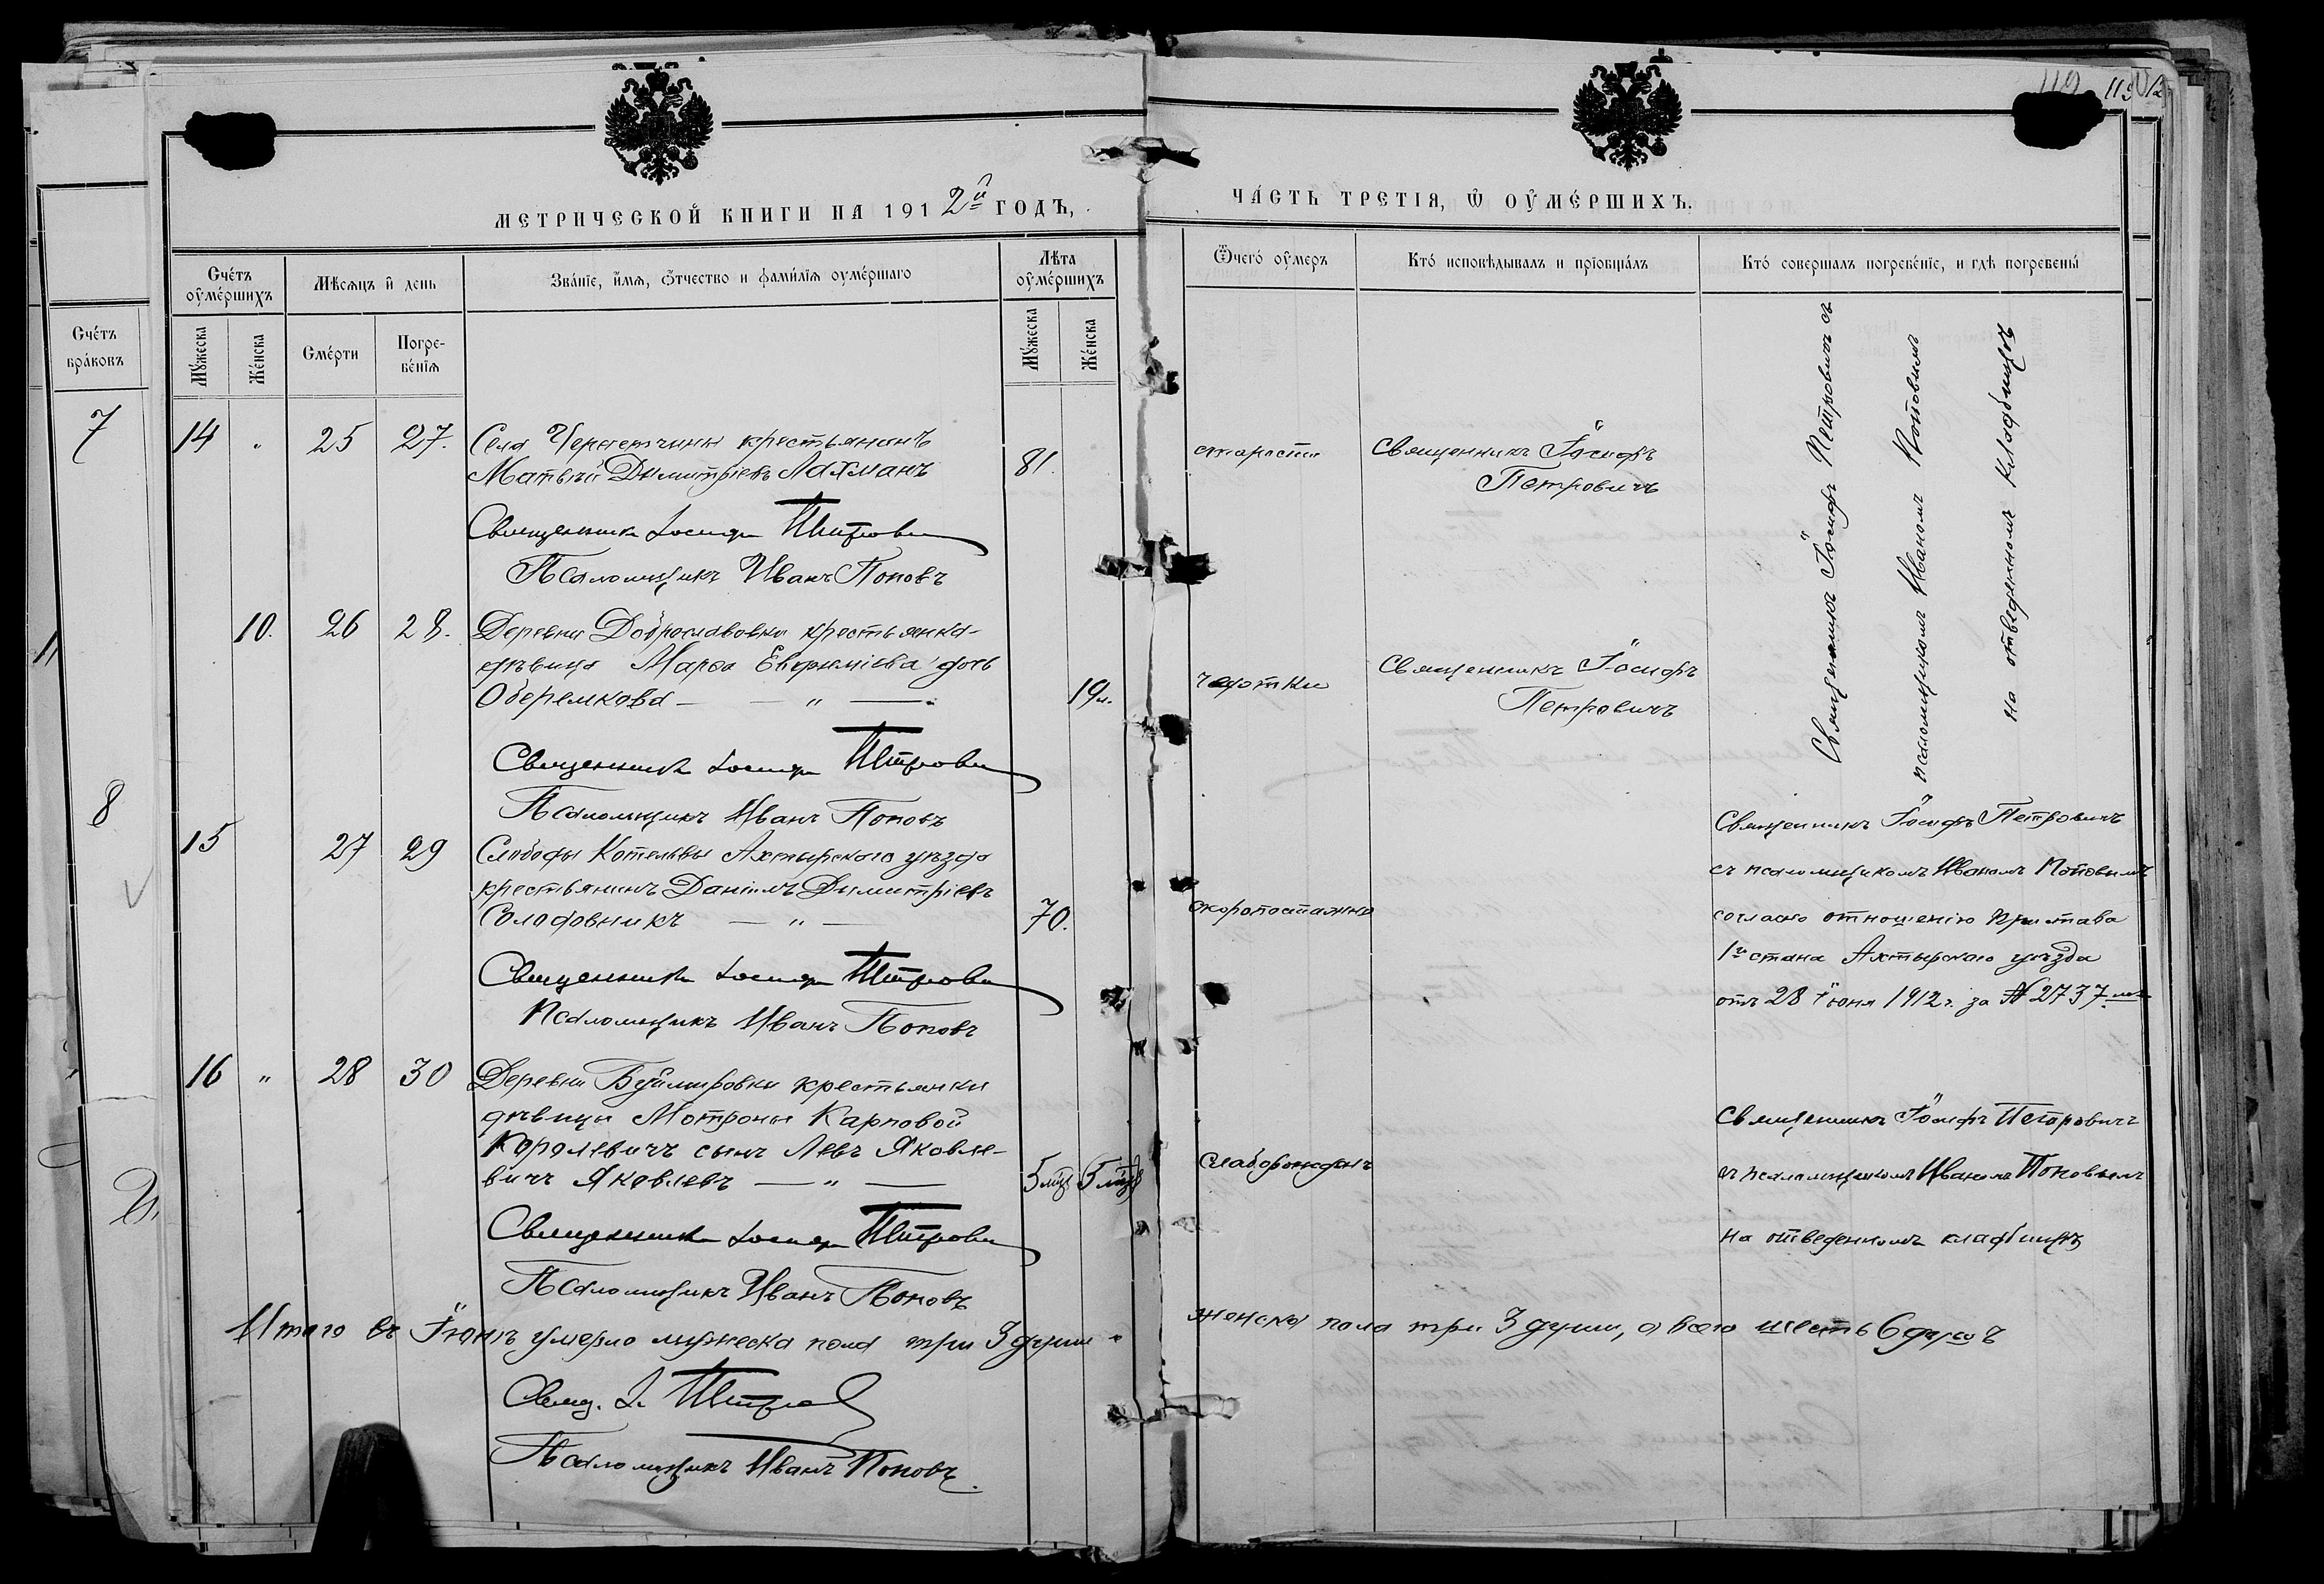 112 113
МЕТРИЧЕСКОЙ КНИГИ НА 1912й ГОДЪ,
ЧАСТЬ ТРЕТІЯ, Ѿ ОУМЕРШИХЪ.
Счетъ браковъ
7
8
Счетъ оумершихъ
Мужеска
Женска
Мѣсяцъ и день
Смерти
Погребенія
Званіе, имя, отчество и фамилія оумершаго
Лѣта оумершихъ
Мужеска
Женска
Ѿчего оумеръ
Кто исповѣдывалъ и пріобщалъ
Кто совершалъ погребеніе, и гдѣ погребены
14 " 25 27.
Села Чернетчины крестьянинъ
Матвѣй Димитріевъ Лахманъ
81.
старости
Священникъ Іосифъ
Петровичъ
Священникъ Іосифъ Петровичъ съ
псаломщикомъ Иваномъ Поповымъ
на отведенномъ кладбищѣ
Священникъ Іосифъ Петрович
Псаломщикъ Иванъ Поповъ
10. 26 28.
Деревни Доброславовки крестьянка-
дѣвица Марѳа Евфиміева дочь
Оберемкова — — " —
19л.
чахотки
Священникъ Іосифъ
Петровичъ
Священникъ Іосифъ Петрович
Псаломщикъ Иванъ Поповъ
15 27 29
Слободы Котельвы Ахтырскаго уѣзда
крестьянинъ Даніилъ Димитріевъ
Солодовникъ — " —
70.
скоропостижно
Священникъ Іосифъ Петровичъ
съ псаломщикомъ Иваномъ Поповымъ
согласно отношенію Пристава
1го стана Ахтырскаго уѣзда
отъ 28 Іюня 1912 г. за № 2737
Священникъ Іосифъ Петрович
Псаломщикъ Иванъ Поповъ
16 " 28 30
Деревни Буймировки крестьянки
дѣвицы Мотроны Карповой
Королевичъ сынъ Левъ Яковле-
вичъ Яковлевъ — " —
5 мцъ 5 мцъ
слаборожденъ
Священникъ Іосифъ Петровичъ
съ псаломщикомъ Иваномъ Поповымъ
на отведенномъ кладбищѣ
Священникъ Іосифъ Петрович
Псаломщикъ Иванъ Поповъ
Итого въ Іюнѣ умерло мужеска пола три 3 души
женска пола три 3 души, а всего шесть 6 душъ
Свящ. І. Петров
Псаломщикъ Иванъ Поповъ.